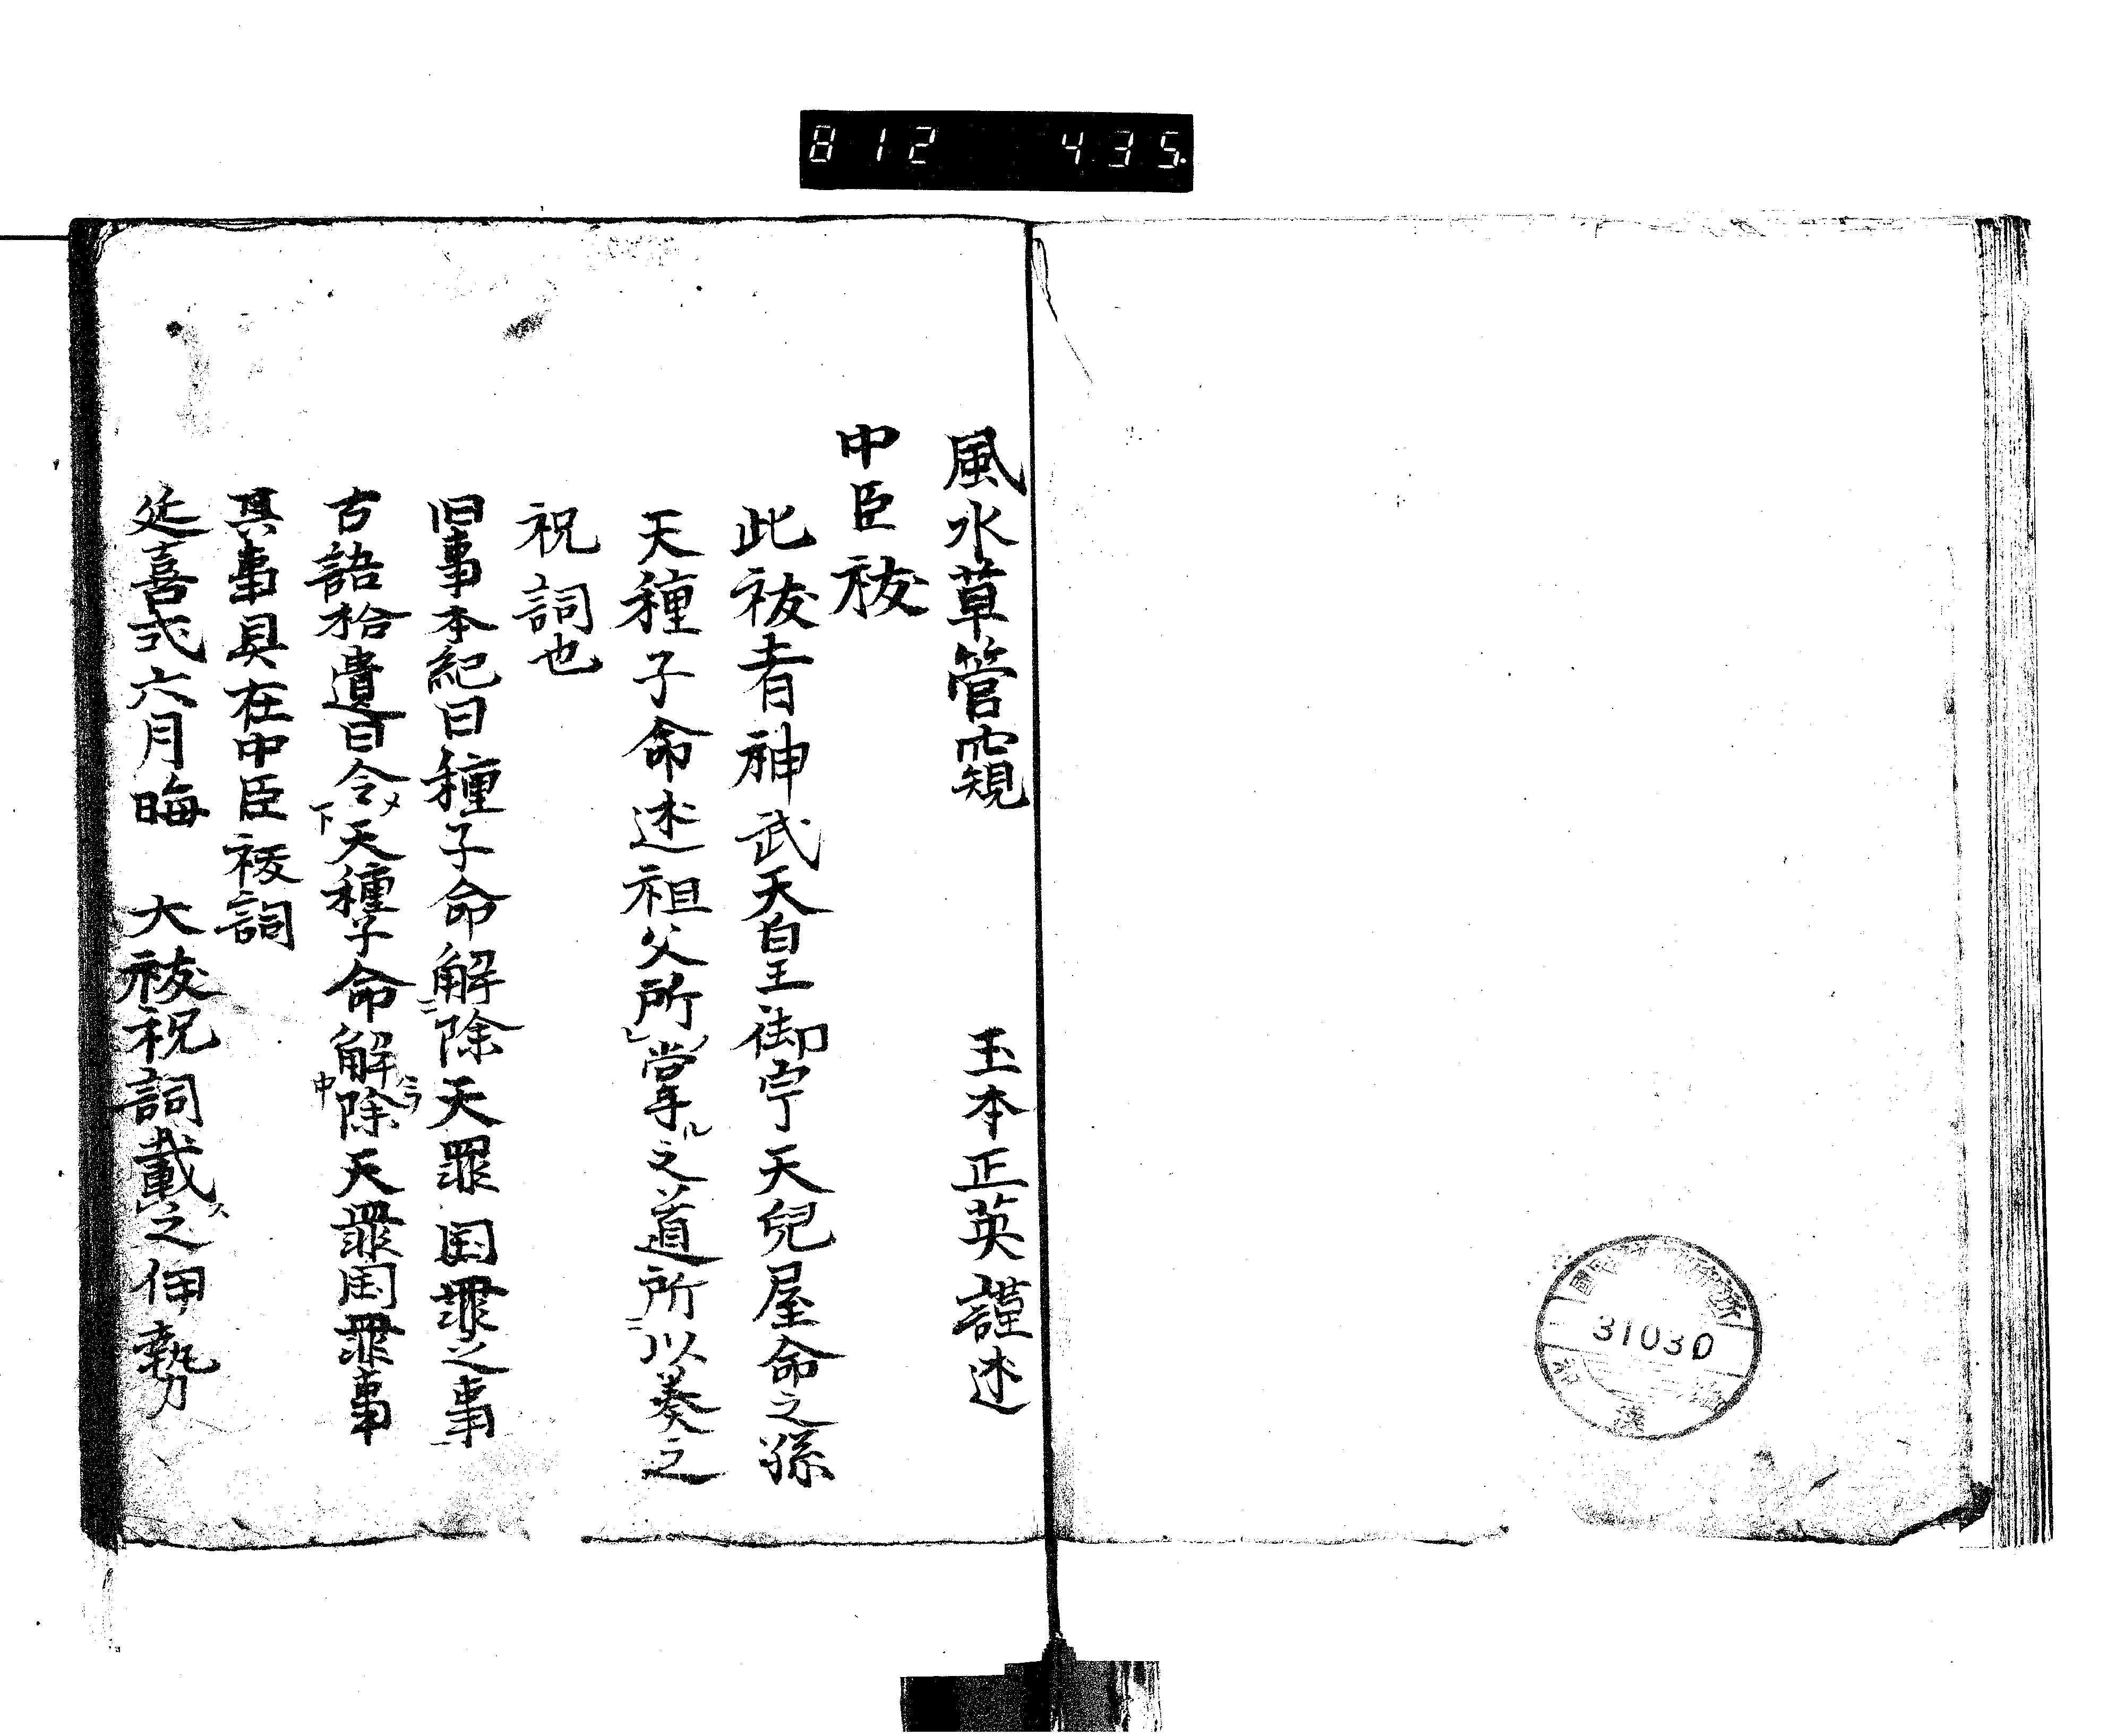 812 435
風水草管窺 玉本正英謹述
中臣祓
此祓者神武天皇御宇天兒屋命之孫
天種子命述祖父所掌ル之道所以奏之
祝詞也
旧事本紀曰種子命解除天罪国罪之事
古語拾遺曰令メ天種子命解除天罪国罪事
具事具在中臣祓詞
延喜式六月晦 大祓祝詞載ス之伊勢
31030